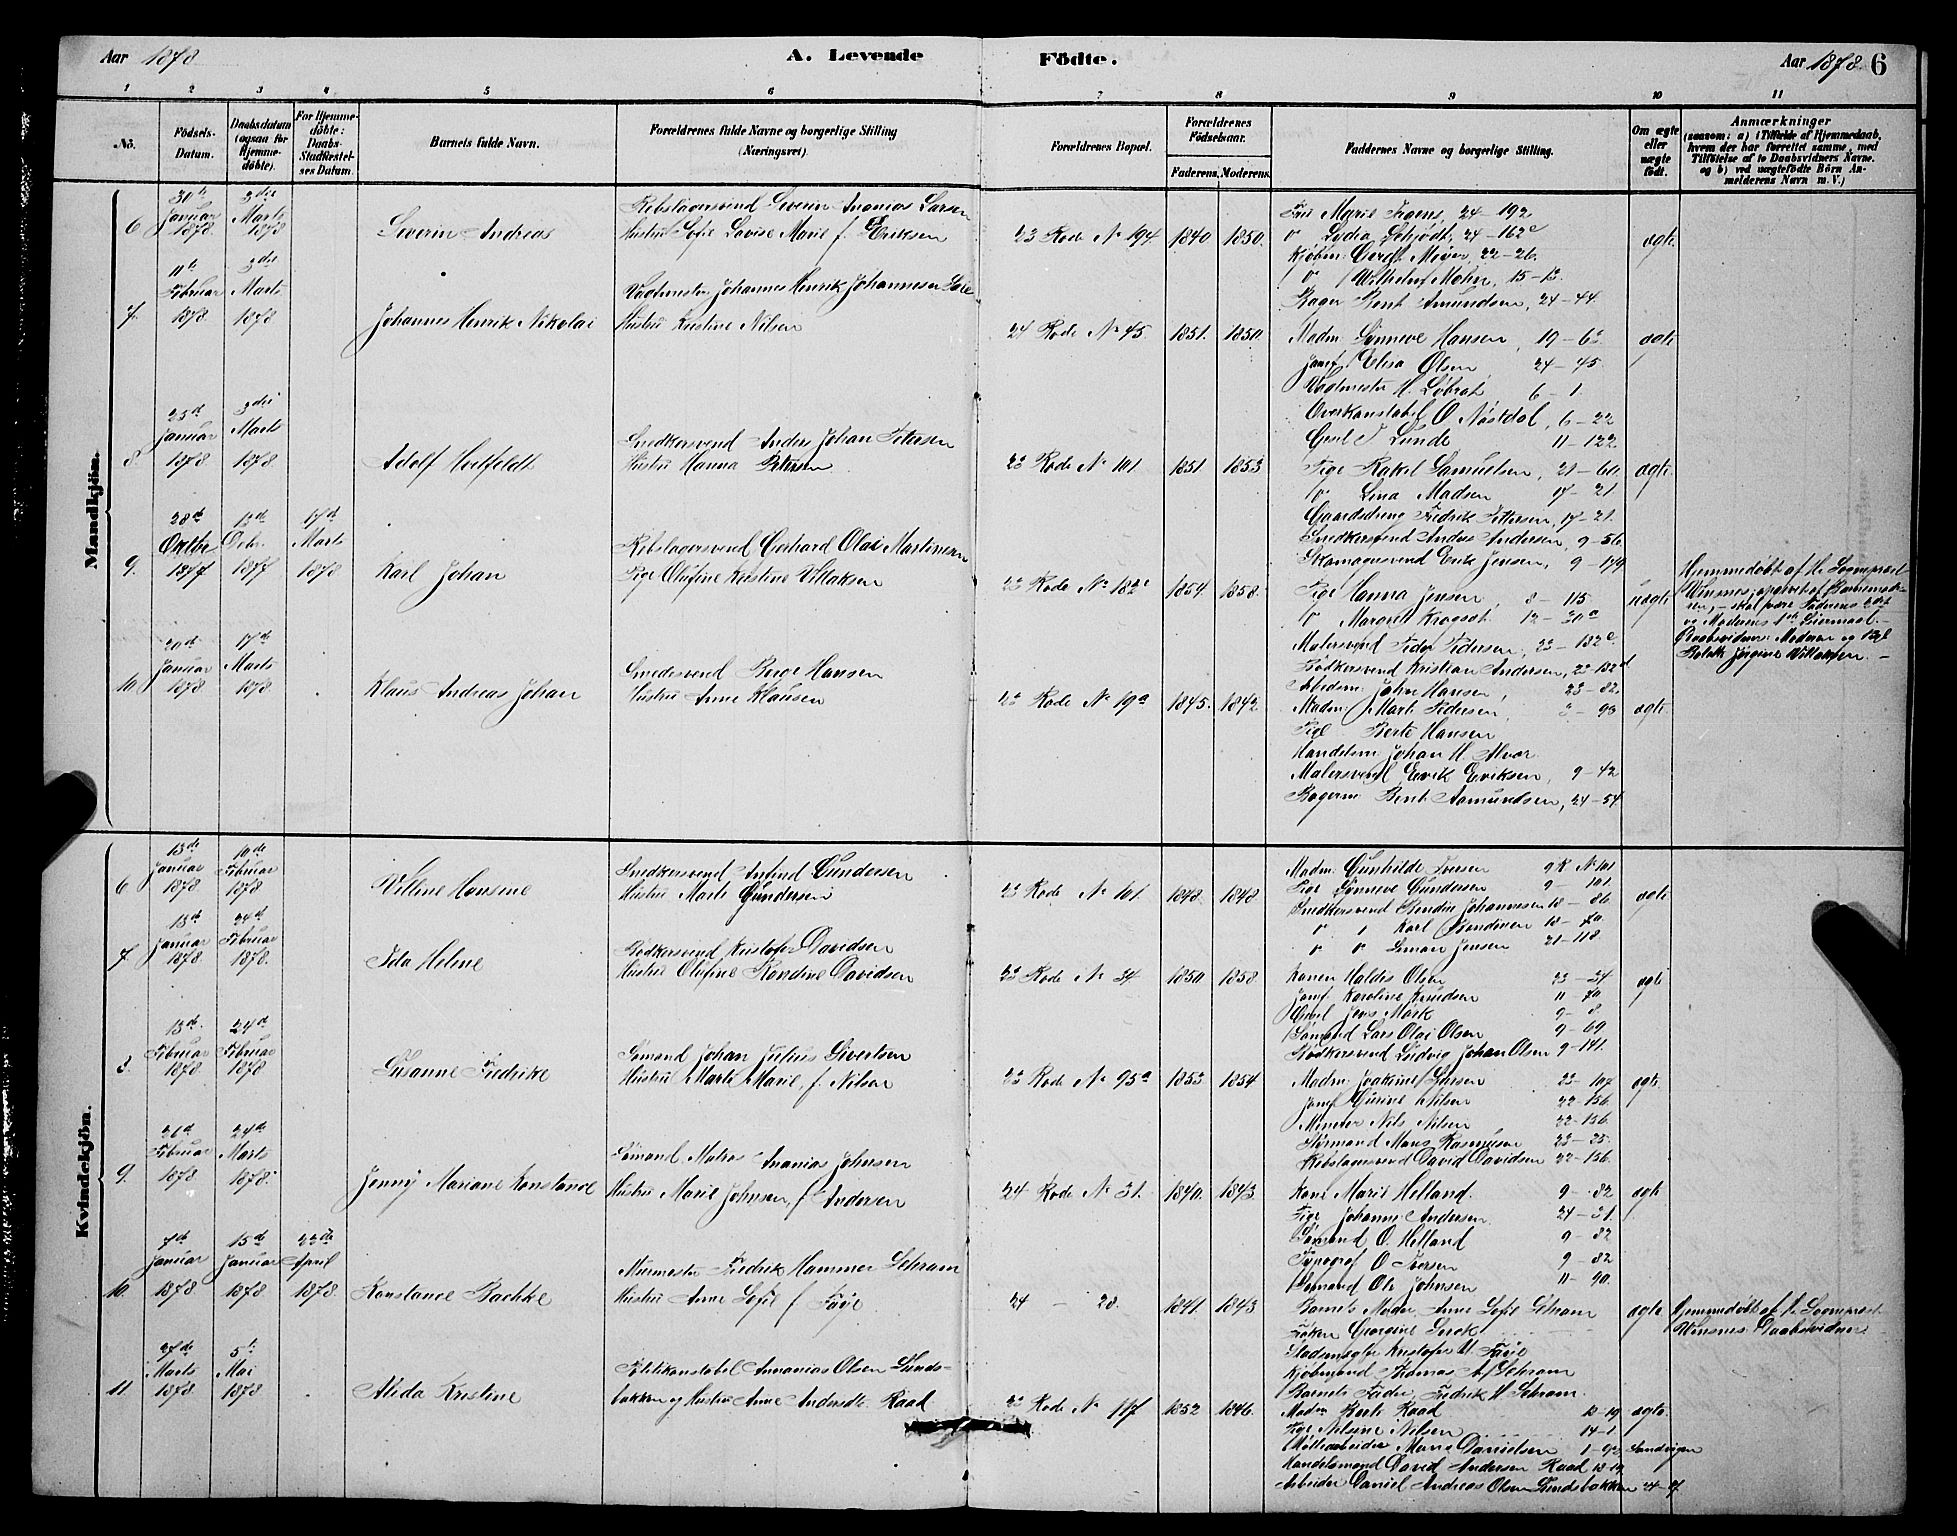 Aar 1878
A. Levende Födte.
Aar 1878. 6
1 2 3 4 5 6 7 8 9 10 11
Nö.
Födsels-Datum.
Daabsdatum (ogsaa for Hjemme-döbte).
For Hjemme-döbte: Daabs-Stadfæstel-ses Datum.
Barnets fulde Navn.
Forældrenes fulde Navne og borgerlige Stilling (Næringsvei).
Forældrenes Bopæl.
Forældrenes Födselsaar.
Faderens. Moderens.
Faddernes Navne og borgerlige Stilling.
Om ægte eller uægte født.
Anmærkninger
(saasom: a) i Tilfælde af Hjemmedaab, hvem der har forrettet samme, med Tilföielse af to Daabsvidners Navne, og b) ved uægtefödte Börn Anmelderens Navn m. V.)
Mandkjön.
6. 30te Januar 1878 3die Marts 1878
Severin Andreas
Rebslagersvend Severin Ananias Larsen
Hustru Sofie Lovise Marie f. Eriksen
23 Rode No 194. 1840 1850.
Fru Marie Frons, 24-192
Lydia Schjødt, 24-162c
Kjøbm. Gerdt Meyer, 22-26.
Wilhelm Mohn, 15-13.
Bager Bent Amundsen, 24-44.
ægte.
7. 11te Februar 1878 3die Marts 1878
Johannes Henrik Nikolai
Vagtmester Johannes Henrik Johannesen
Hustru Kristine Nilsen
24 Rode No 45. 1851. 1850.
Madm. Sønneve Hansen, 19-63
Jomf. Elisa Olsen, 24-45.
Vagtmester H. Løbrat 6-1.
Overkonstabel O. Nøstdal, 6-22
Gesel T. Lunde 11-122
ægte
8. 25de Januar 1878 3die Marts 1878.
Adolf Hvitfeldt
Snedkersvend Anders Johan Petersen
Hustru Hanna Petersen
23 Rode No 101. 1851. 1853
Pige Rakel Samuelsen, 21-60.
Lina Madsen 17-21.
Gaardsdreng Fredrik Pettersen, 17-21.
Snedkersvend Anders Andersen, 9-56
Skomagersvend Erik Jensen, 9-179
ægte.
9. 28de Oktbr 1877 13de Debr. 1877 17de Marts 1878
Karl Johan
Rebslagersvend Gerhard Olai Martinsen
Pige Olufine Kristine Villaksen
23 Rode No 182c 1854. 1858.
Pige Hanna Jensen, 8-115
Margret Krogsot. 12-30a
Malersvend Peder Pedersen, 23-132c
Bødkersvend Kristian Andersen, 23-132d
Arbeidsm. John Hansen, 23-82
uægte
Hjemmedøbt af Hr. Sognepræst Winsnes, opgivet af Barnemoderen, skal være Faderens 2det og Moderens 1ste Leiermaal.
Daabsvidner: Moderen og Pige Bolette Jørgine Villaksen.
10. 20de Januar 1878 17de Marts 1878
Klaus Andreas Johan
Smedesvend Berge Hansen
Hustru Anne Klausen
23 Rode No 19a 1845. 1842
Madm. Marte Pedersen, 3-93
Pige Berte Hansen
Handelsm. Johan H. Alvær
Malersvend Erik Eriksen, 9-42
Bagerm. Bent Aamundsen, 24-54
ægte.
Kvindekjön.
6 13de Januar 1878 10de Februar 1878
Villine Hansine
Snedkersvend Arfind Gundersen
Hustru Marte Gundersen
23 Rode No 101. 1848. 1848
Madm. Gunhilde Iversen 9 R No 101
Pige Sønneve Gundersen 9-101.
Snedkersvend Bendix Johannesen 18-86
Karl Bendixen 18-70
Simon Jensen 21-118.
ægte
7. 15de Januar 1878 24de Februar 1878.
Ida Helene
Bødkersvend Kristofer Davidsen
Hustru Olufine Randine Davidsen
23 Rode No 34. 1850. 1858.
Konen Haldis Olsen 23-34
Jomf. Karoline Knudsen 11-70
Gesel Jens Mark 9-8
Sømand Lars Olai Olsen 9-69
Bødkersvend Ludvig Johan Olsen 9-141.
ægte
8. 13de Februar 1878 24de Februar 1878
Susanne Fredrike
Sømand Johan Julius Sivertsen
Hustru Marte Marie, f. Nilsen
23 Rode No 95a 1853 1854
Madm. Joakime Larsen 23-107
Jomf. Gurine Nilsen 22-156.
Minerer Nils Nilsen 22-156.
Styrmand Mons Rasmussen 23-25.
Rebslagersvend David Davidsen 22-156.
ægte.
9. 26de Februar 1878 24de Marts 1878.
Jenny Mariane Konstance
Sømand, Matros Ananias Johnsen
Hustru Marie Johnsen, f. Andersen
24 Rode No 31. 1840. 1843
Kone Marie Helland. 9-82
Pige Johanne Andersen. 24-31.
Sømand O. Helland 9-82
Typograf O. Iversen 9-82
Sømand Ole Johnsen 11-90.
ægte
10. 7de Januar 1878 15de Januar 1878 22de April 1878
Konstance Bachke
Murmester Fredrik Hammer Schram
Hustru Anne Sofie f. Faye
24 - 28. 1841. 1843
Barnets Moder Anne Sofie Schram
Frøken Georgine Sneek
Stadsmægler Kristofer U. Faye
Kjøbmand Thomas A. Schram
Barnets Fader, Fredrik H. Schram.
ægte
Hjemmedøbt af Hr. Sognepræst Winsnes. Daabsvidner
11. 27de Marts 1878 5te Mai 1878
Alida Kristine
Politikonstabel Annanias Olsen Lunds-
bakken og Hustru Anne Andersdtr. Raad
23 Rode No 117 1852 1846.
Madm. Berte Raad 13-19
Pige Nilsine Nilsen 14-1.
Møllearbeider Mons Danielsen 1-93 Sandvigen
Handelsmand David Andersen Raad 13-19
Arbeider Daniel Andreas Olsen Lundsbakken 24-7.
ægte.